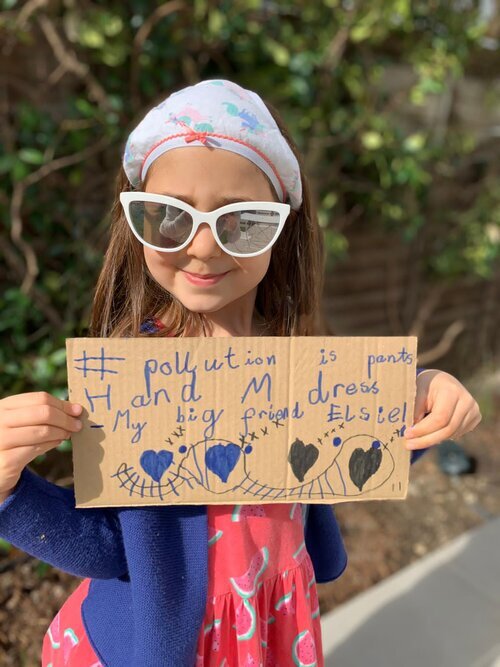 # pollution is pants
Hand M dress
- My big friend Elsie!